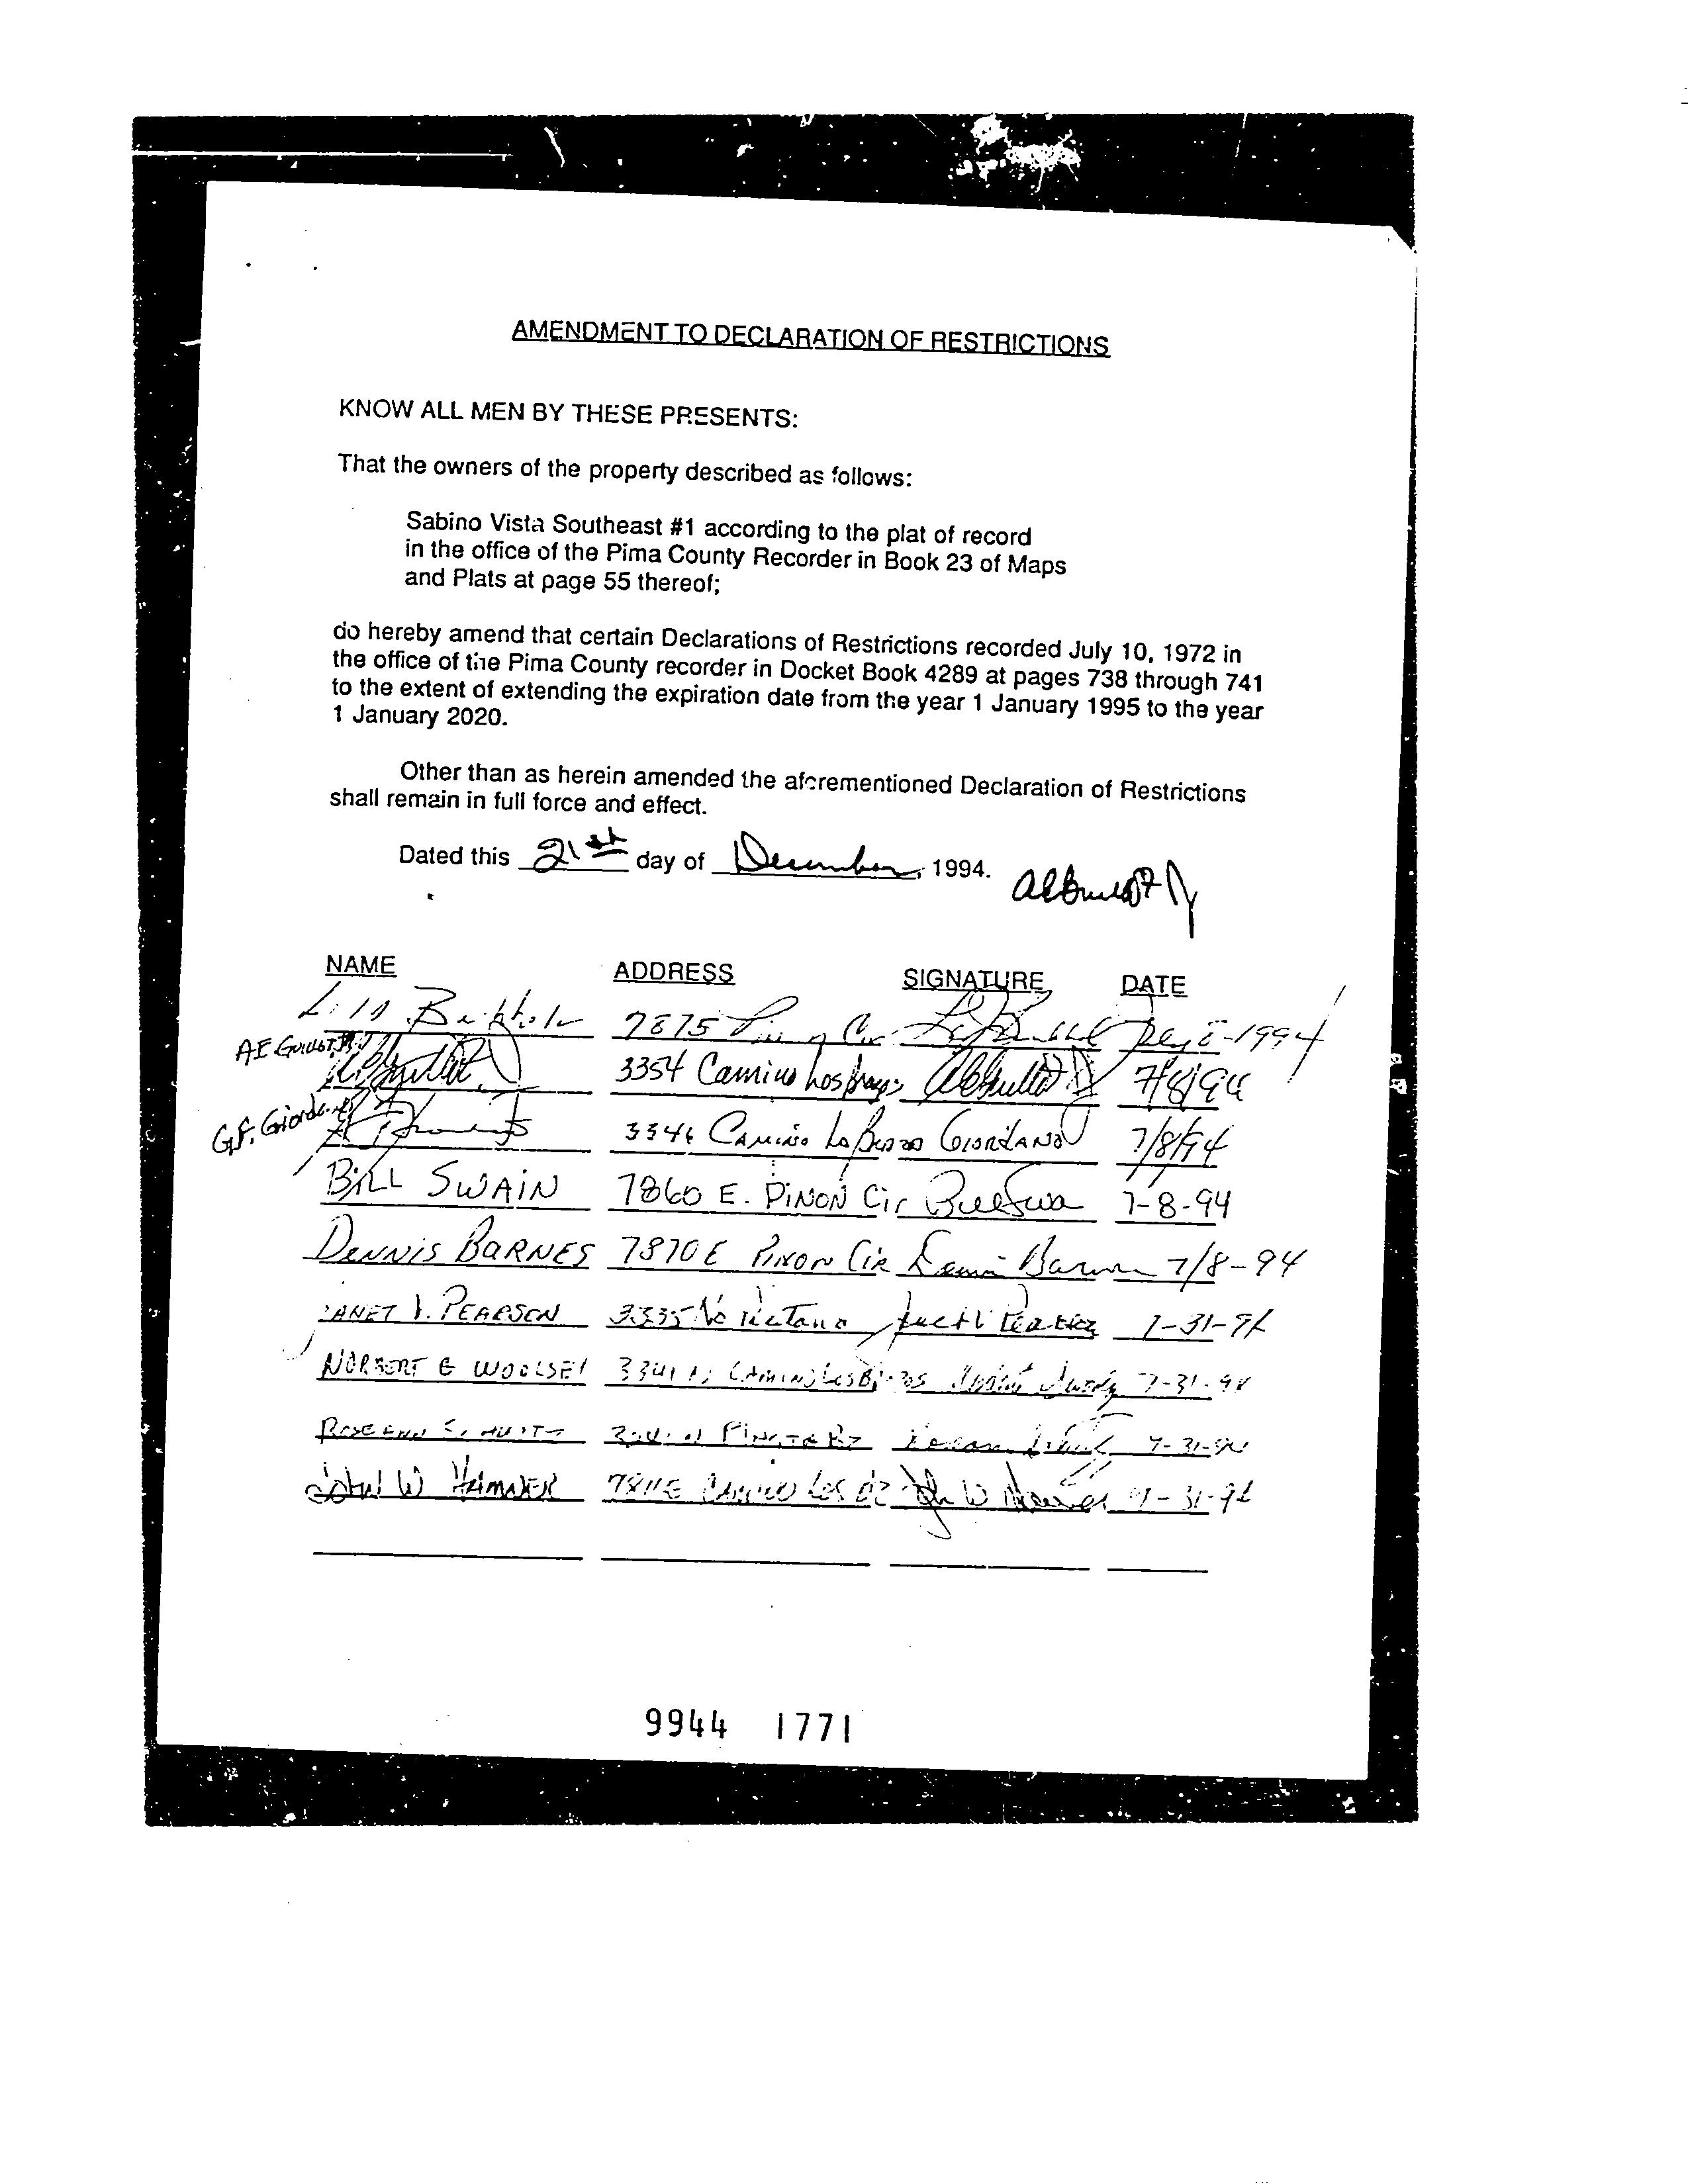 AMENDMENT TO DECLARATION OF RESTRICTIONS
KNOW ALL MEN BY THESE PRESENTS:
That the owners of the property described as follows:
Sabino Vista Southeast #1 according to the plat of record
in the office of the Pima County Recorder in Book 23 of Maps
and Plats at page 55 thereof;
do hereby amend that certain Declarations of Restrictions recorded July 10, 1972 in
the office of the Pima County recorder in Docket Book 4289 at pages 738 through 741
to the extent of extending the expiration date from the year 1 January 1995 to the year
1 January 2020.
Other than as herein amended the aforementioned Declaration of Restrictions
shall remain in full force and effect.
Dated this 21st day of December, 1994.
NAME ADDRESS SIGNATURE DATE
7875 Cir 8-1994
3354 Camino Los 7/8/94
G.F. Giordano 3346 Camino GIORDANO 7/8/94
BILL SWAIN 7860 E. PINON Cir Bill Swa 7-8-94
DENNIS BARNES 7870 E PINON CIR Dennis Barnes 7/8-94
JANET V. PEARSON 3335 No 7-31-94
NORBERT G WOOLSEY 3341 N CAMINO LOS 7-31-94
7-31-94
JOHN W HAMNER CAMINO LOS John W 7-31-94
9944 1771